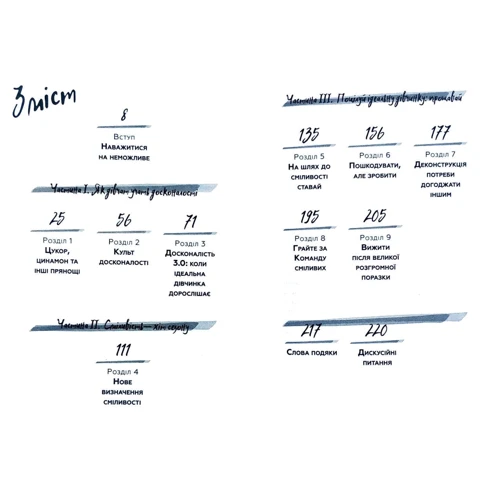 Зміст
8
Вступ
Наважитися
на неможливе
Частина I. Як дівчат учать досконалості
25
Розділ 1
Цукор,
цинамон та
інші прянощі
56
Розділ 2
Культ
досконалості
71
Розділ 3
Досконалість
3.0: коли
ідеальна
дівчинка
дорослішає
Частина II. Сміливість — хіт сезону
111
Розділ 4
Нове
визначення
сміливості
Частина III. ідеальну дівчинку: прощавай
135
Розділ 5
На шлях до
сміливості
ставай
156
Розділ 6
Пошкодувати,
але зробити
177
Розділ 7
Деконструкція
потреби
догоджати
іншим
195
Розділ 8
Грайте за
Команду
сміливих
205
Розділ 9
Вижити
після великої
розгромної
поразки
217
Слова подяки
220
Дискусійні
питання